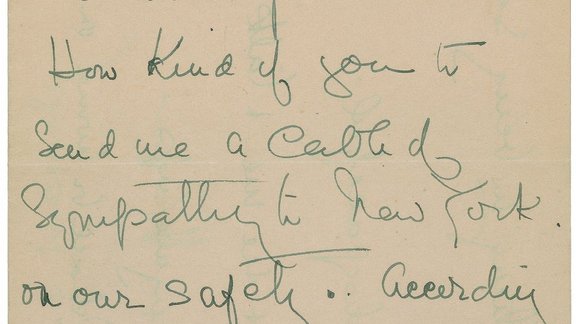 How Kind of you to
Send me a Cable of
Sympathy to New York.
on our safety.. According